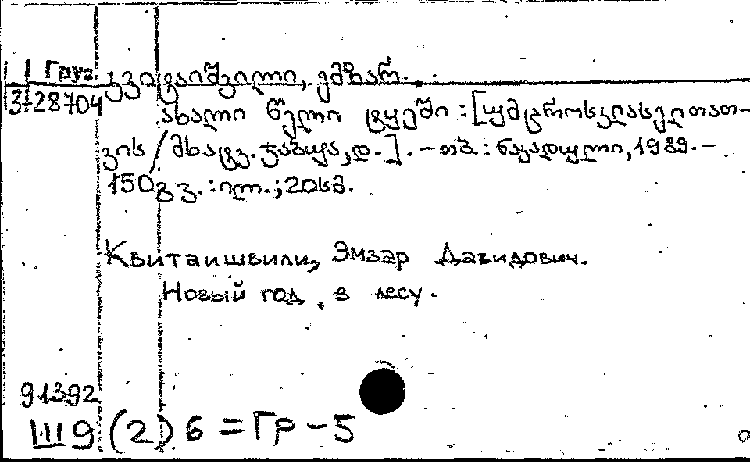 Груз.
3-28704
კვიტაიშვილი, ემზარ.
ახალი წელი ტყეში : [უმცროსკლასელთათ-
ვის / მხატვ. ჯაბუა, დ.]. – თბ. : ნაკადული, 1989. –
150 გვ. : ილ. ; 20სმ.
Квитаишвили, Эмзар Давидович.
Новый год в лесу.
91392
Ш9(2)6=Гр-5